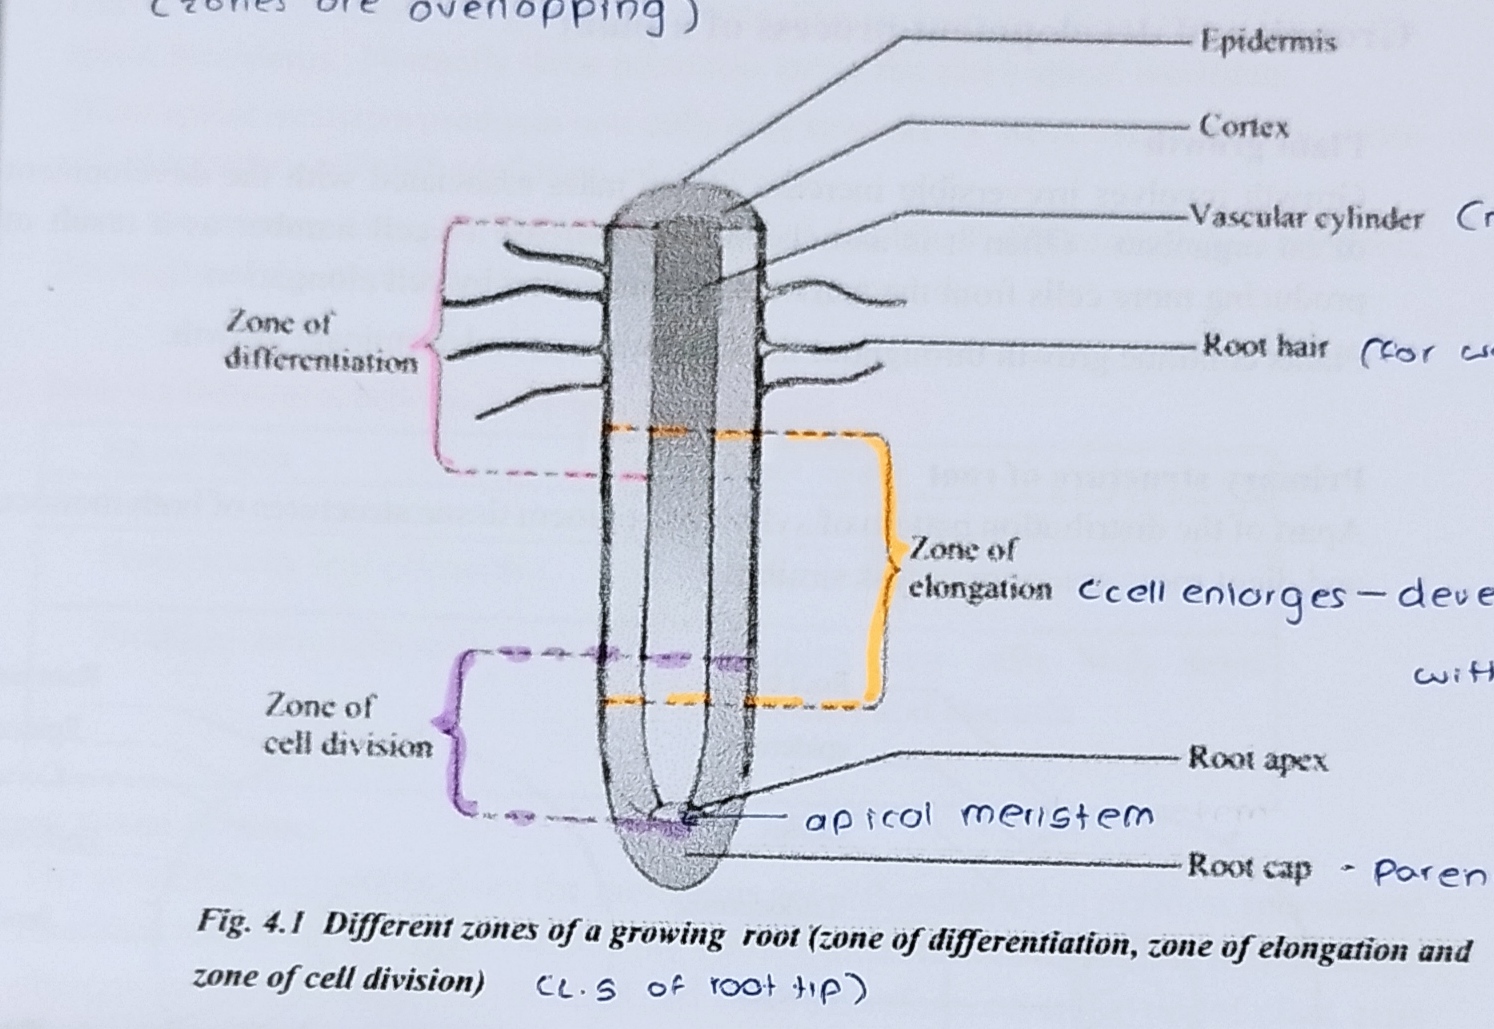 (zones are overlapping)
Epidermis
Cortex
Vascular cylinder
Zone of
differentiation
Root hair (for
Zone of
elongation (cell enlarges –
Zone of
cell division
Root apex
apical meristem
Root cap -
Fig. 4.1 Different zones of a growing root (zone of differentiation, zone of elongation and
zone of cell division) (L.S of root tip)